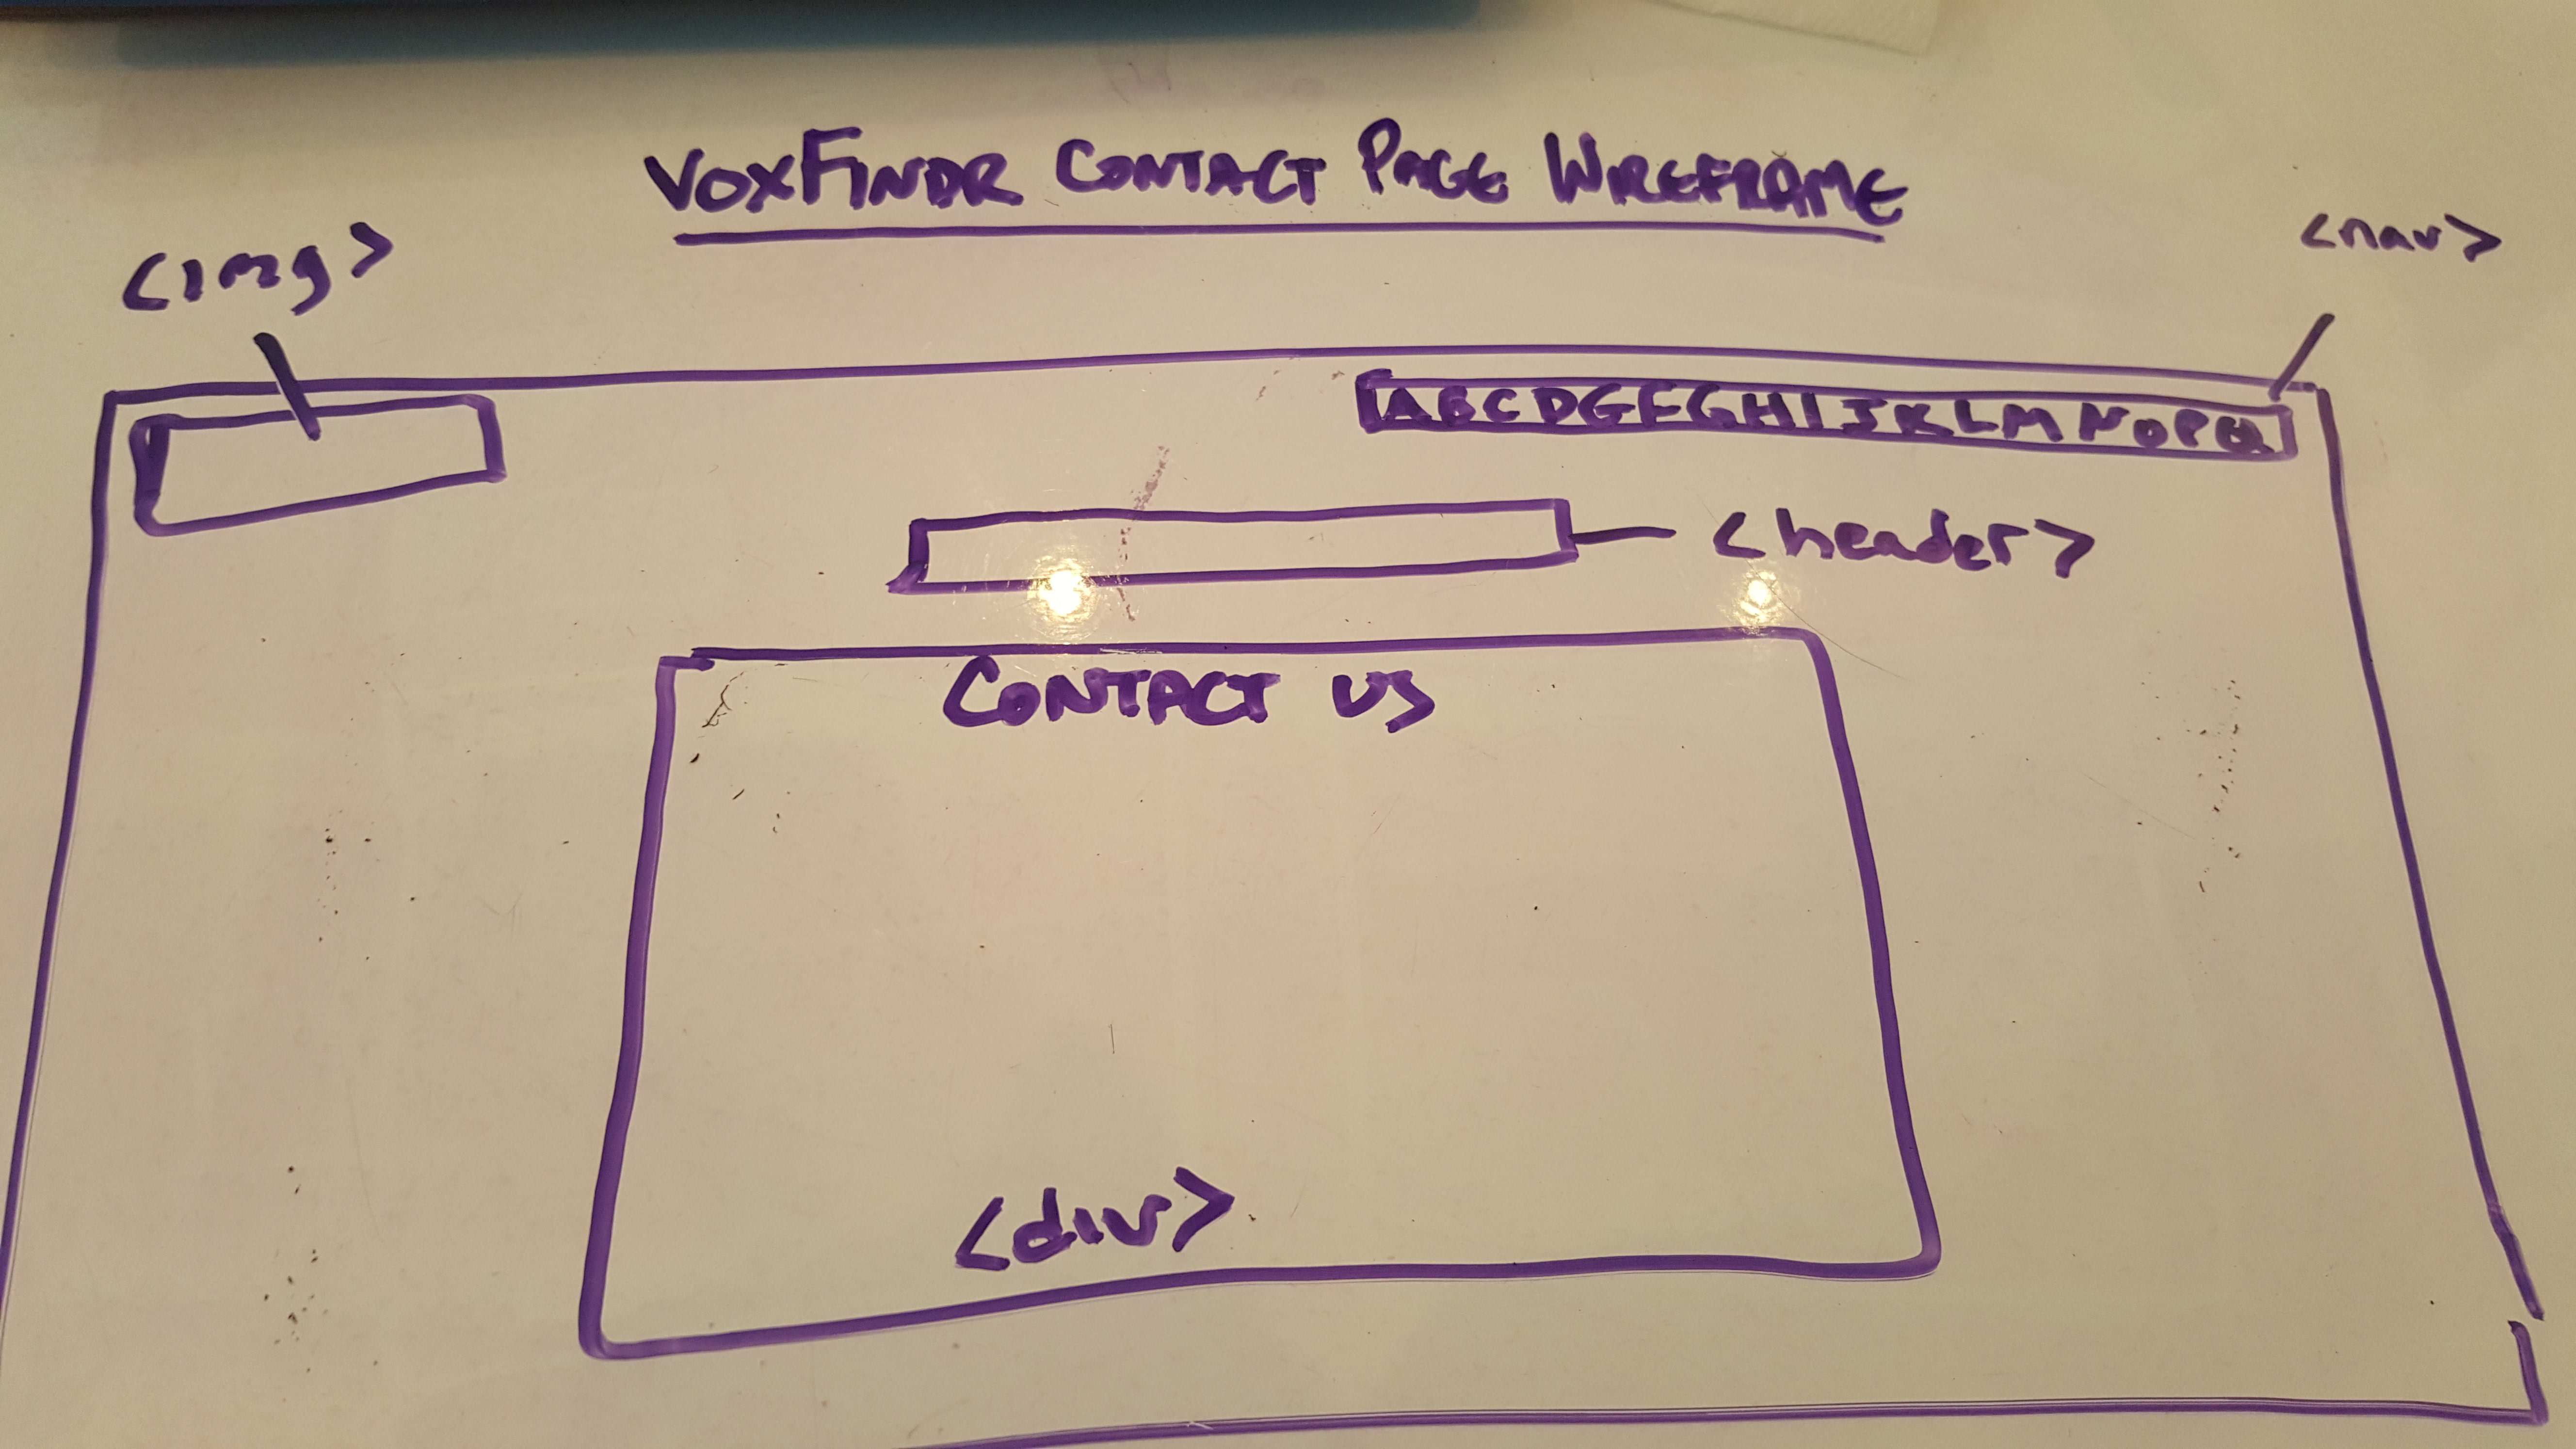 VOXFINDR CONTACT PAGE WIREFRAME
<img>
<nav>
ABCDGFGHIJKLMNOPQ
<header>
CONTACT US
<div>